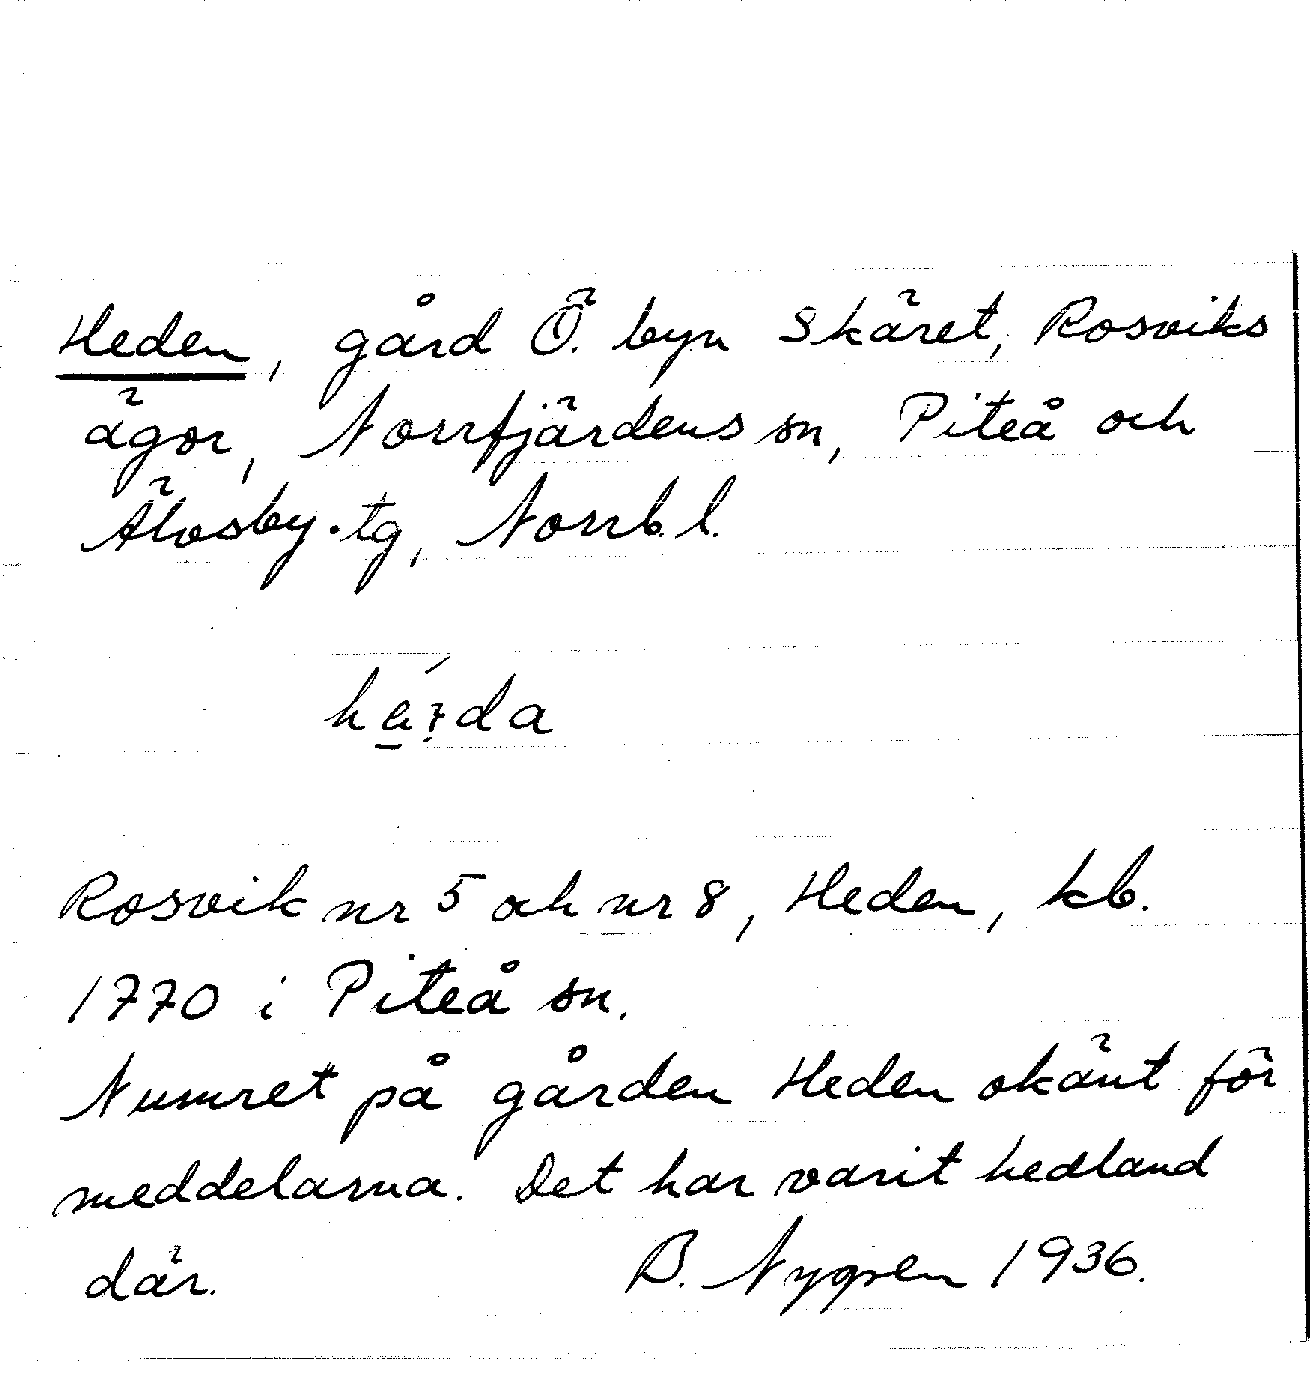 Heden, gård Ö. byn Skäret, Rosviks
ägor, Norrfjärdens sn, Piteå och
Älvsby.tg, Norrb.l.
Rosvik nr 5 och nr 8, Heden, kb.
1770 i Piteå sn.
Numret på gården Heden okänt för
meddelarna. Det har varit hedland
där. B. Nygren 1936.